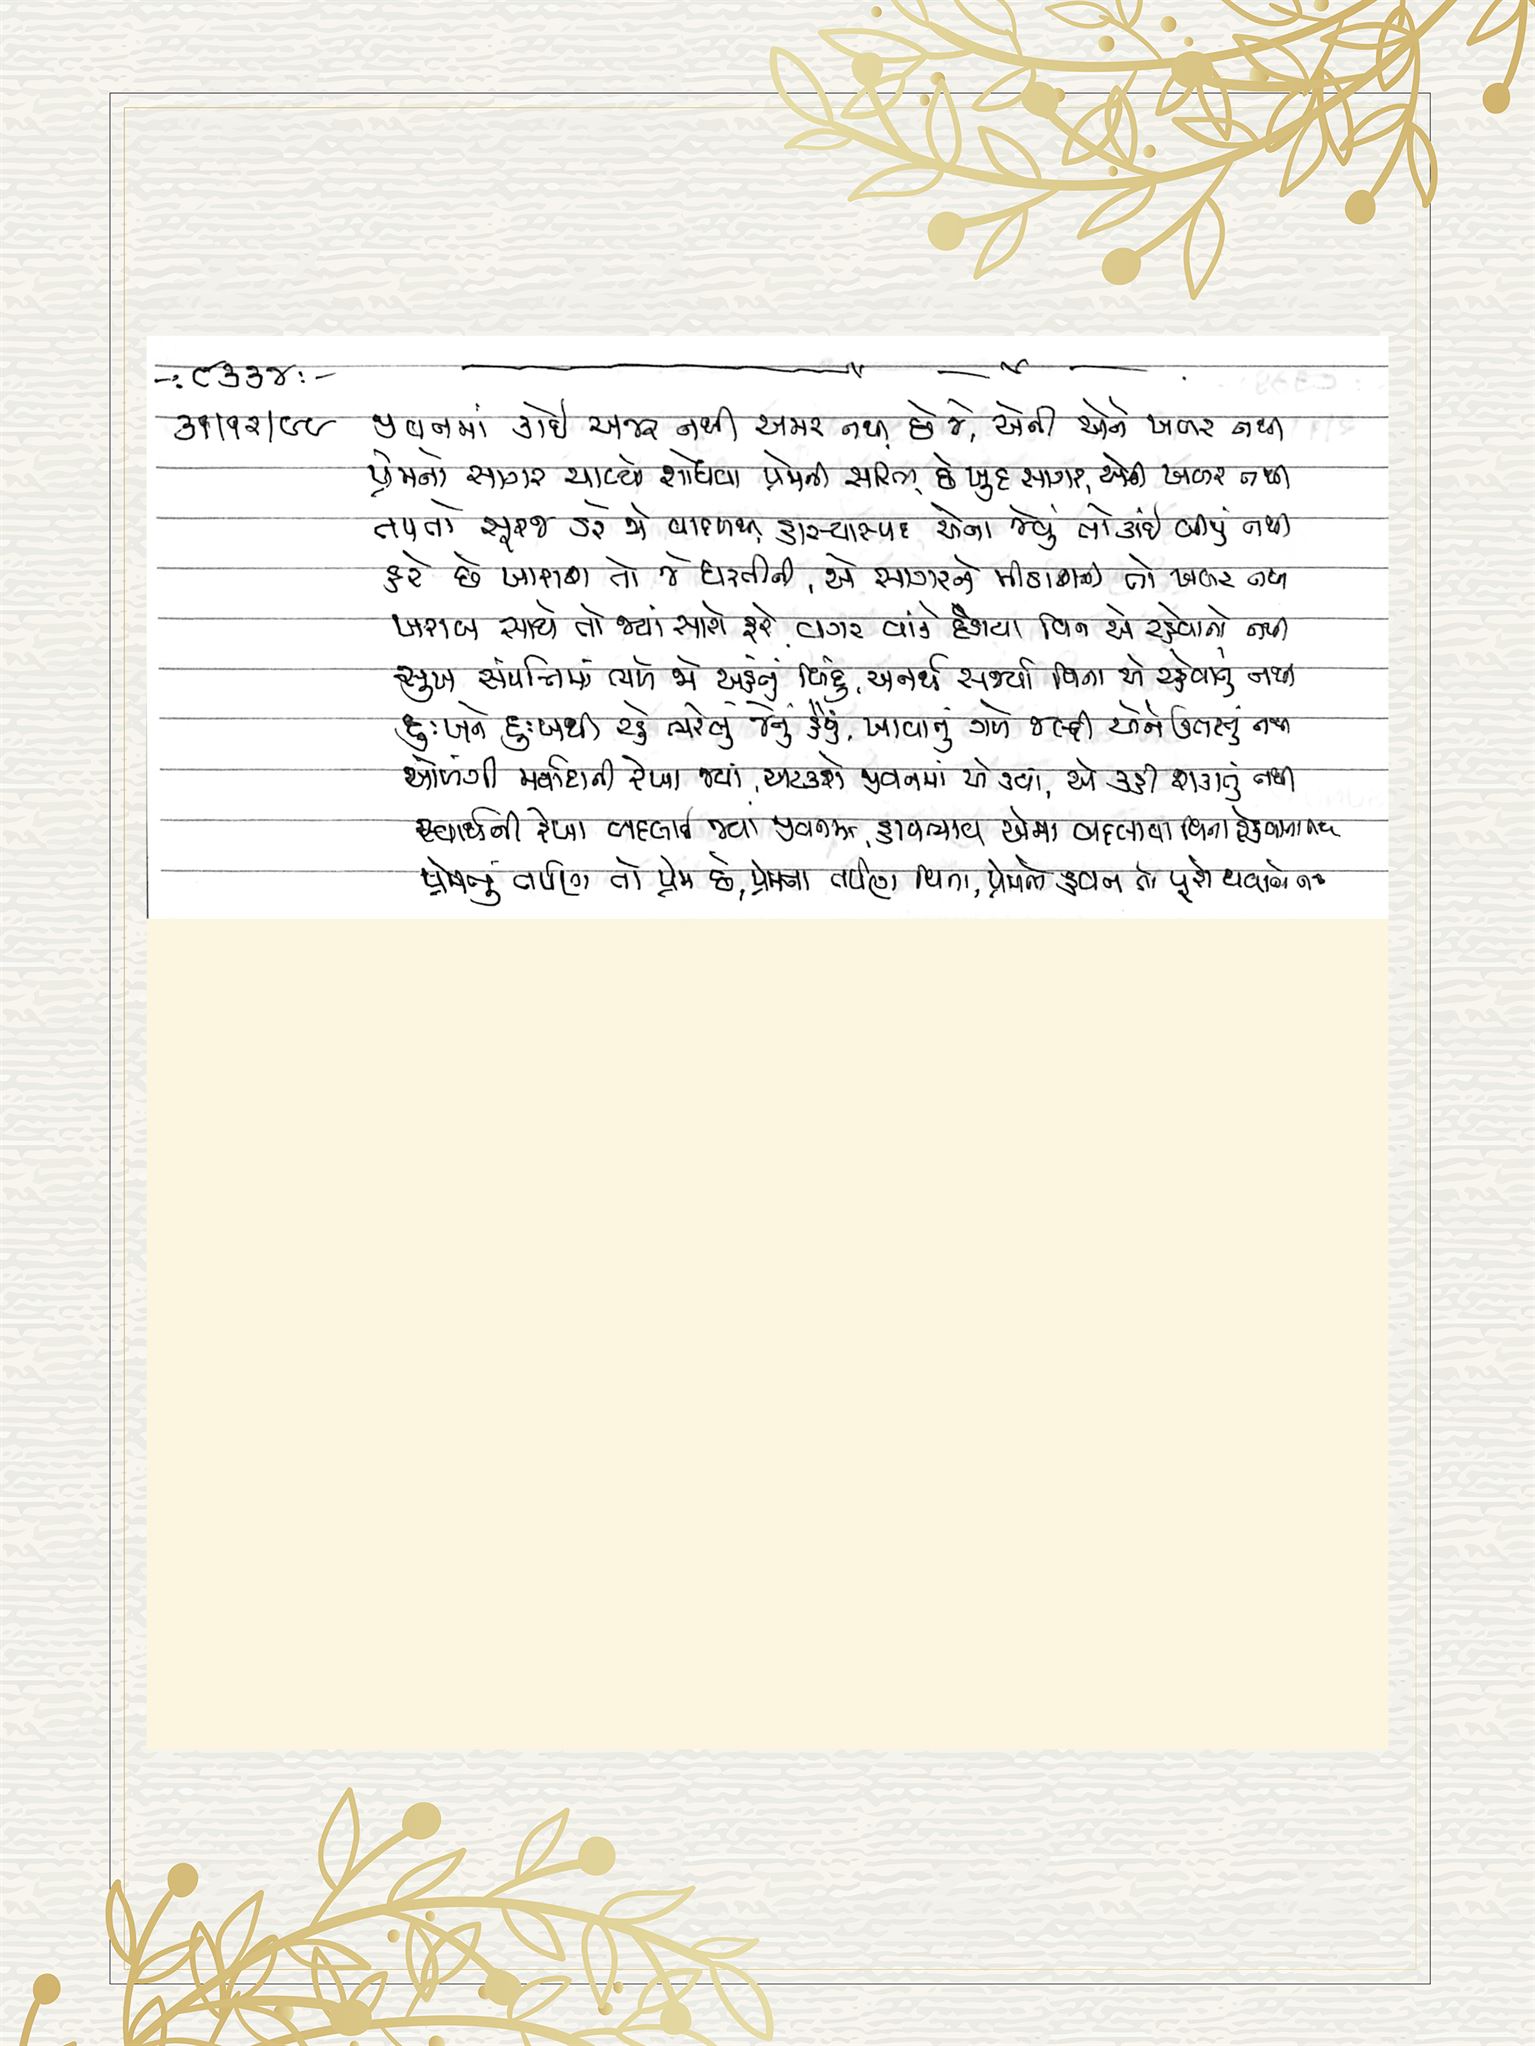 -: ૯૩૩૪ :-
૩૧/૧૨/૯૯ જીવનમાં કોઈ અજર નથી અમર નથી, છે જે, એની એને ખબર નથી
પ્રેમનો સાગર ચાલ્યો શોધવા પ્રેમની સરિતા, છે ખુદ સાગર, એની ખબર નથી
તપતો સૂરજ ડરે જો વાદળથી, હાસ્યાસ્પદ એના જેવું તો કાંઈ બીજું નથી
કરે છે ખારાશ તો જે ધરતીની, એ સાગરને મીઠાશની તો ખબર નથી
ખરાબ સાથે તો જ્યાં સારો ફરે, વગર વાંકે દંડાયા વિના એ રહેવાનો નથી
સુખ સંપત્તિમાં ભળે જો અહંનું બિંદુ, અનર્થ સર્જ્યા વિના એ રહેવાનું નથી
દુઃખને દુઃખથી રહે ભરેલું જેનું હૈયું, ખાવાનું ગળે જલ્દી એને ઊતરતું નથી
ઓળંગી મર્યાદાની રેખા જ્યાં, અટકશે જીવનમાં એ ક્યાં, એ કહી શકાતું નથી
સ્વાર્થની રેખા બદલાઈ જ્યાં જીવનમાં, હાવભાવ એમાં બદલાયા વિના રહેવાના નથી
પ્રેમનું તર્પણ તો પ્રેમ છે, પ્રેમના તર્પણ વિના, પ્રેમનો હવન તો પૂરો થવાનો નથી